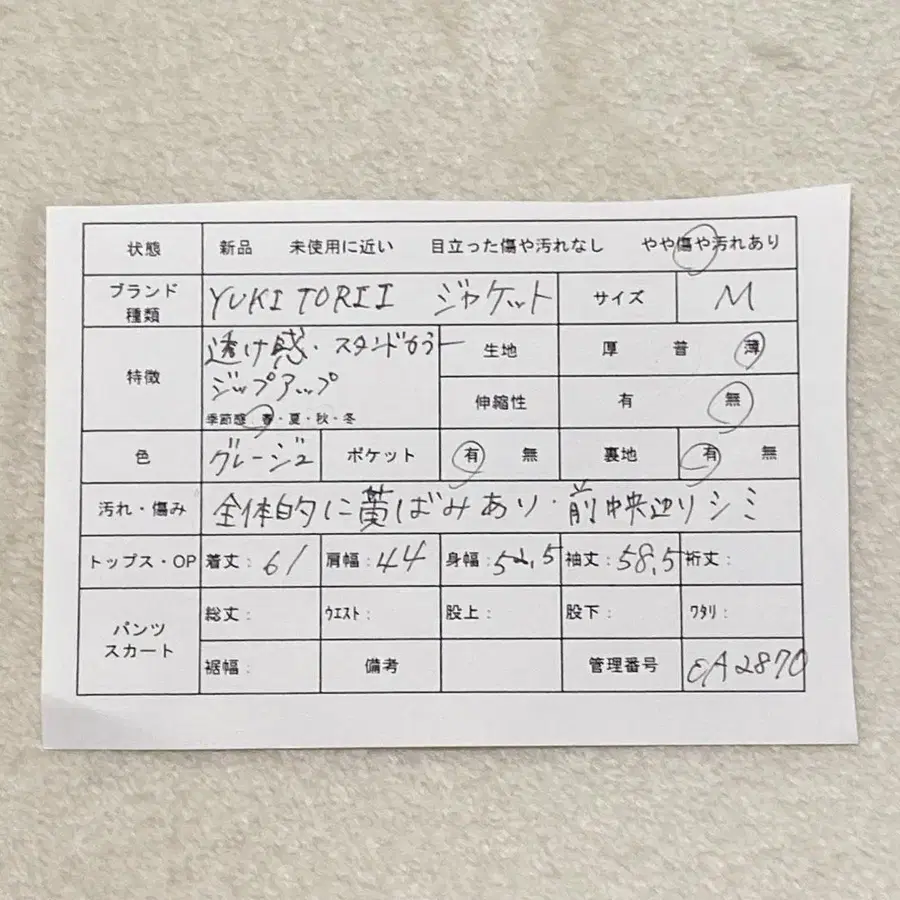 状態 新品 未使用に近い 目立った傷や汚れなし やや傷や汚れあり
ブランド 種類 YUKI TORII ジャケット サイズ M
特徴 透け感・スタンドカラー
ジップアップ
季節感:春・夏・秋・冬
生地 厚 普 薄
伸縮性 有 無
色 グレージュ ポケット 有 無 裏地 有 無
汚れ・傷み 全体的に黄ばみあり・前中央辺りシミ
トップス・OP 着丈: 61 肩幅: 44 身幅: 52.5 袖丈: 58.5 裄丈:
パンツ スカート 総丈: ウエスト: 股上: 股下: ワタリ:
裾幅: 備考 管理番号 EA2870